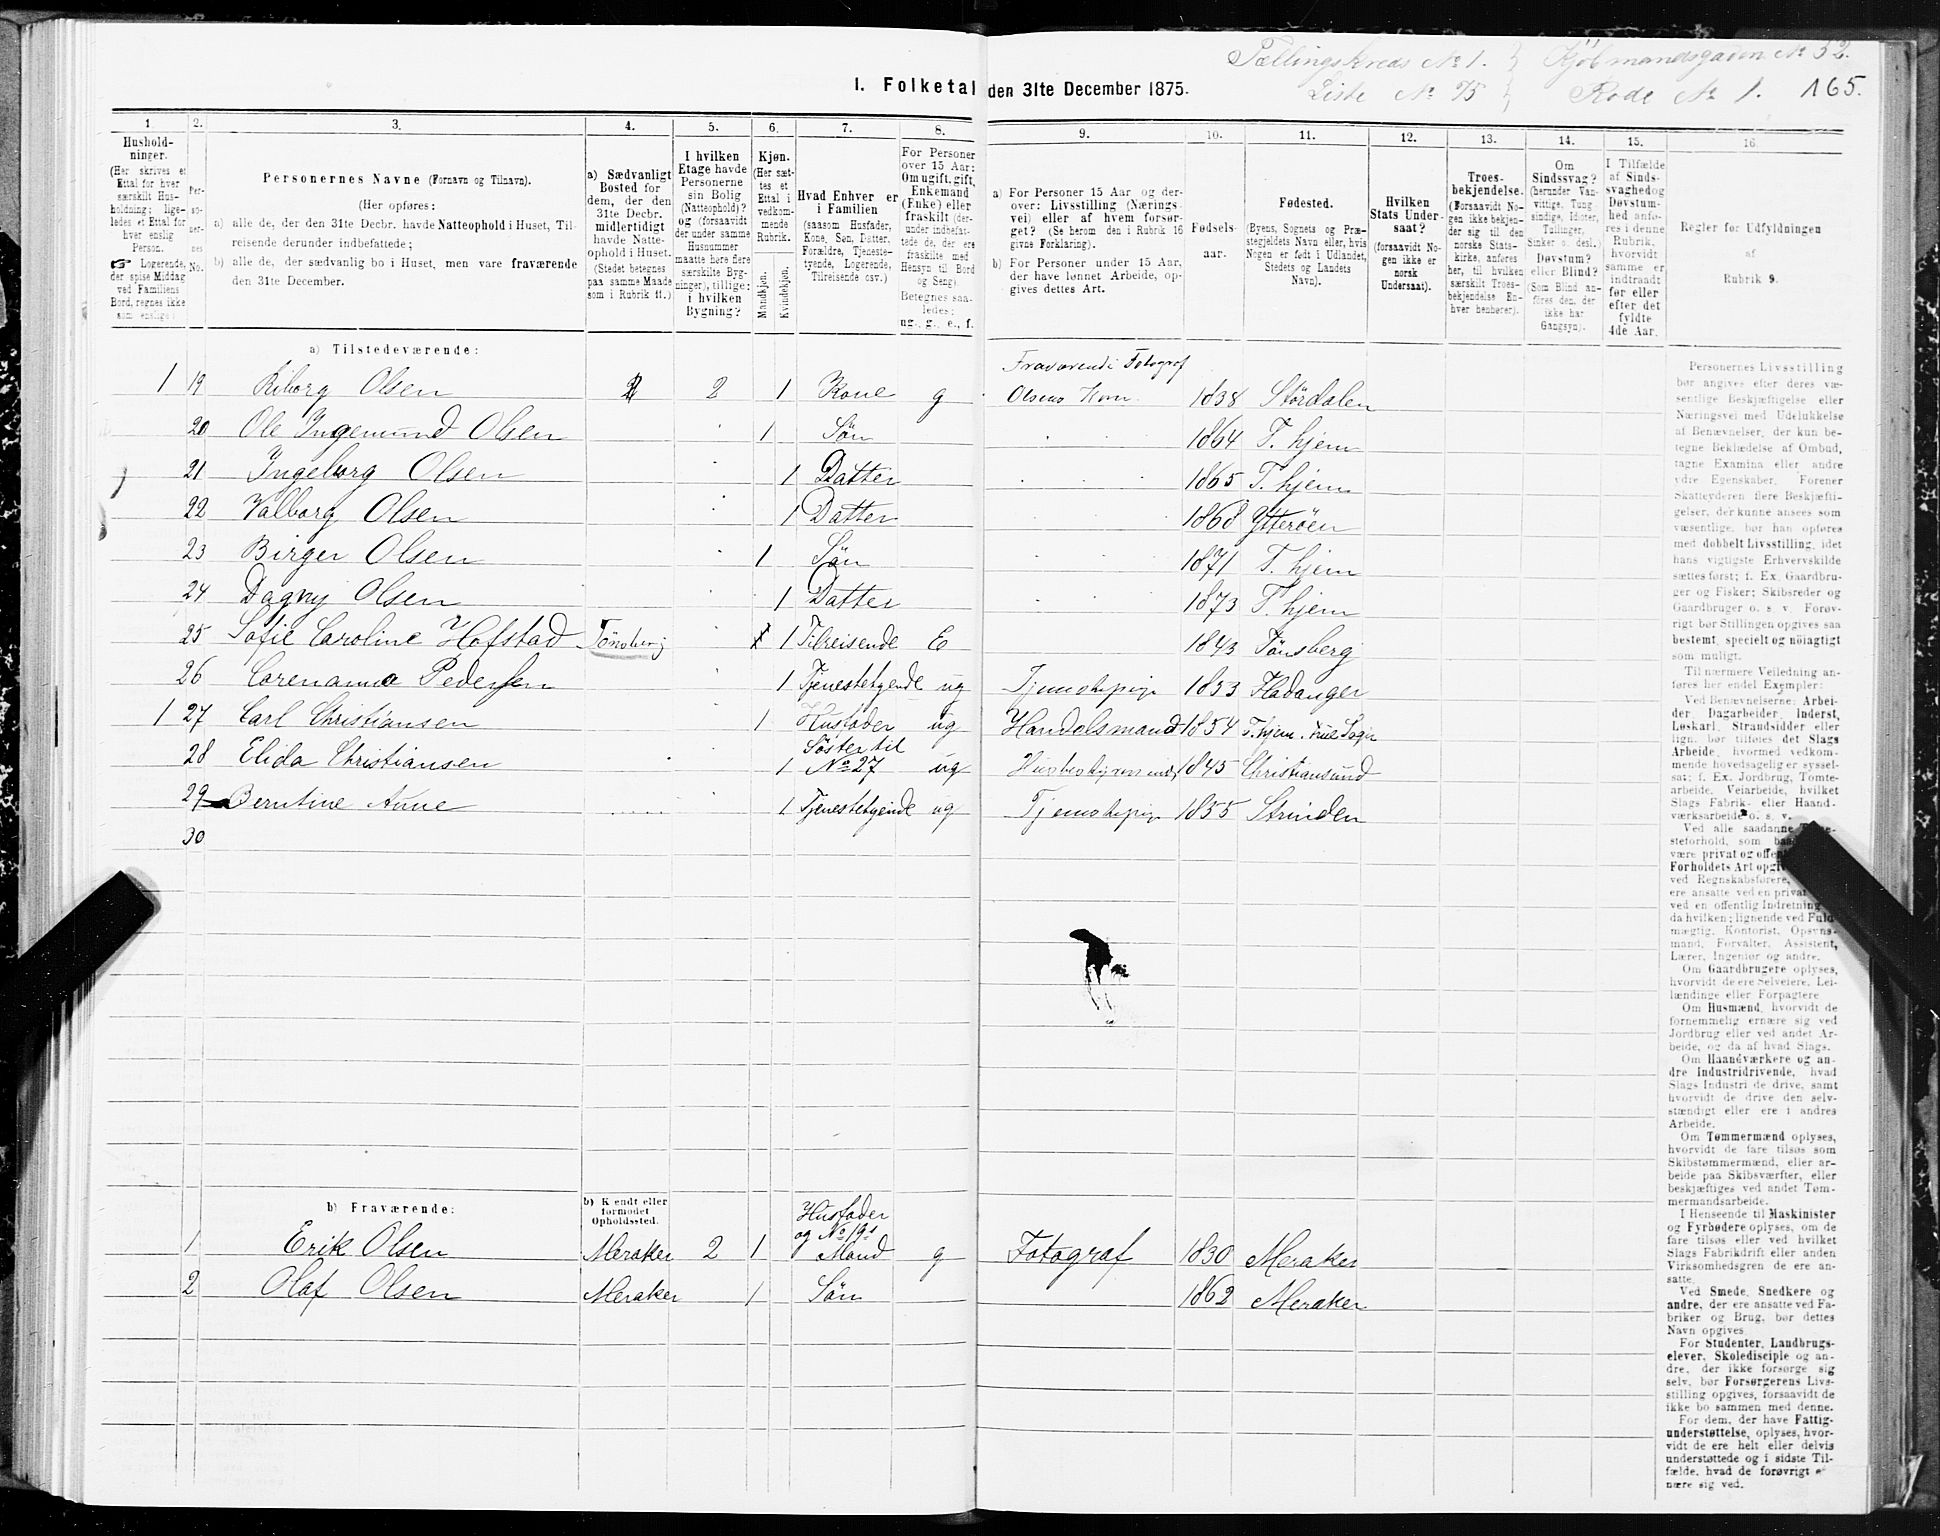 I. Folketal den 31te December 1875.
Tællingskreds No 1. Kjøbmandsgaden No 52.
Liste No 75 Rode No 1. 165.
1. 2. 3. 4. 5. 6. 7. 8. 9. 10. 11. 12. 13. 14. 15. 16.
Hushold-
ninger.
(Her skrives et
Ettal for hver
særskilt Hus-
holdning; lige-
ledes et Ettal for
hver enslig
Person.
☞ Logerende,
der spise Middag
ved Familiens
Bord, regnes ikke
som enslige.)
Per-
so-
ner-
nes
No.
Personernes Navne (Fornavn og Tilnavn).
(Her opføres:
a) alle de, der den 31te Decbr. havde Natteophold i Huset, Til-
reisende derunder indbefattede;
b) alle de, der sædvanlig bo i Huset, men vare fraværende
den 31te December.
a) Sædvanligt
Bosted for
dem, der den
31te Decbr.
midlertidigt
havde Natte-
ophold i Huset.
(Stedet betegnes
paa samme Maade
som i Rubrik 11.)
I hvilken
Etage havde
Personerne
sin Bolig
(Natteophold)?
og (forsaavidt
der under samme
Husnummer
maatte høre flere
særskilte Byg-
ninger), tillige:
i hvilken
Bygning?
Kjøn.
(Her sæt-
tes et
Ettal i
vedkom-
mende
Rubrik.
Mandkjøn.
Kvindekjøn.
Hvad Enhver er
i Familien
(saasom Husfader,
Kone, Søn, Datter,
Forældre, Tjeneste-
tyende, Logerende,
Tilreisende osv.)
For Personer
over 15 Aar:
Om ugift, gift,
Enkemand
(Enke) eller
fraskilt (der-
under indbefat-
tede de, der ere
fraskilte med
Hensyn til Bord
og Seng).
Betegnes saa-
ledes:
ug., g., e., f.
a) For Personer 15 Aar og der-
over: Livsstilling (Nærings-
vei) eller af hvem forsør-
get? (Se herom den i Rubrik 16
givne Forklaring).
b) For Personer under 15 Aar,
der have lønnet Arbeide, op-
gives dettes Art.
Fødsels-
aar.
Fødested.
(Byens, Sognets og Præ-
stegjeldets Navn eller, hvis
Nogen er født i Udlandet,
Stedets og Landets
Navn).
Hvilken
Stats Under-
saat?
(forsaavidt No-
gen ikke er
norsk
Undersaat).
Troes-
bekjendelse.
(Forsaavidt No-
gen ikke bekjen-
der sig til den
norske Stats-
kirke, anføres
her, til hvilken
særskilt Troes-
bekjendelse En-
hver henhører).
Om
Sindssvag?
(herunder Van-
vittige, Tung-
sindige, Idioter,
Tullinger,
Sinker o. desl.)
Døvstum?
eller Blind?
(Som Blind an-
føres den, der
ikke har
Gangsyn).
I Tilfælde
af Sinds-
svaghed og
Døvstum-
hed anfø-
res i denne
Rubrik,
hvorvidt
samme er
indtraadt
før eller
efter det
fyldte
4de Aar.
Regler for Udfyldningen
af
Rubrik 9.
a) Tilstedeværende:
Fraværende Fotograf
1 19 Olsen 2 1 Kone g Olsens Kone 1838 Stördalen
20 Ole Ingemund Olsen 1 Sön 1864 T. hjem
21 Ingeborg Olsen 1 Datter 1865 T. hjem
22 Valborg Olsen 1 Datter 1868 Ytteröen
23 Birger Olsen 1 Sön 1871 T. hjem
24 Dagny Olsen 1 Datter 1873 T. hjem
25 Sofie Caroline Hofstad Tönsberg 1 Tilreisende E 1843 Tönsberg
26 Carenanna Pedersen 1 Tjenestetyende ug Tjenestepige 1853 Fladanger
1 27 Carl Christiansen 1 Husfader ug Handelsmand 1854 T. hjem. Frue Sogn
28 Elida Christiansen 1 Söster til No 27 ug 1845 Christiansund
29 Berntine Aune 1 Tjenestetyende ug Tjenestepige 1855 Strinden
30
b) Fraværende:
b) Kjendt eller
formodet
Opholdssted.
Husfader
og No 19s
1 Erik Olsen Meraker 2 1 Mand g Fotograf 1830 Meraker
2 Olaf Olsen Meraker 1 Sön 1862 Meraker
Personernes Livsstilling
bør angives efter deres væ-
sentlige Beskjæftigelse eller
Næringsvei med Udelukkelse
af Benævnelser, der kun be-
tegne Beklædelse af Ombud,
tagne Examina eller andre
ydre Egenskaber. Forener
Skatteyderen flere Beskjæfti-
gelser, der kunne ansees som
væsentlige, bør han opføres
med dobbelt Livsstilling, idet
hans vigtigste Erhvervskilde
sættes først; f. Ex. Gaardbru-
ger og Fisker; Skibsreder og
Gaardbruger o. s. v. Forøv-
rigt bør Stillingen opgives saa
bestemt, specielt og nöiagtigt
som muligt.
Til nærmere Veiledning an-
føres her endel Exempler:
Ved Benævnelserne: Arbei-
der, Dagarbeider, Inderst,
Løskarl, Strandsidder eller
lign. bør tilføies det Slags
Arbeide, hvormed vedkom-
mende hovedsagelig er syssel-
sat; f. Ex. Jordbrug, Tomte-
arbeide, Veiarbeide, hvilket
Slags Fabrik- eller Haand-
værksarbeide o. s. v.
Ved alle saadanne Tjene-
steforhold, som
være privat og
Forholdets Art
ved Regnskabsførere,
ere ansatte ved en privat
ved en offentlig Indretning
da hvilken; lignende ved Fuld-
mægtig, Kontorist, Opsyns-
mand, Forvalter, Assistent,
Lærer, Ingeniør og andre.
Om Gaardbrugere oplyses,
hvorvidt de ere Selveiere, Lei-
lændinge eller Forpagtere
Om Husmænd, hvorvidt de
fornemmelig ernære sig ved
Jordbrug eller ved andet Ar-
beide, og da af hvad Slags.
Om Haandværkere og an-
dre Industridrivende, hvad
Slags Industri de drive, samt
hvorvidt de drive den selv-
stændigt eller ere i andres
Arbeide.
Om Tømmermænd oplyses,
hvorvidt de fare tilsøs som
Skibstømmermænd, eller ar-
beide paa Skibsværfter, eller
beskjæftiges ved andet Tøm-
mermandsarbeide.
I Henseende til Maskinister
og Fyrbødere oplyses, om de
fare tilsøs eller ved hvilket
Slags Fabrikdrift eller anden
Virksomhedsgren de ere an-
satte.
Ved Smede, Snedkere og
andre, der ere ansatte ved Fa-
briker og Brug, bør dettes
Navn opgives.
For Studenter, Landbrugs-
elever, Skoledisciple og an-
dre, der ikke forsørge sig
selv, bør Forsørgerens Livs-
stilling opgives, forsaavidt de
ikke bo sammen med denne.
For dem, der have Fattig-
understøttelse, oplyses, hvor-
vidt de ere helt eller delvis
understøttede og i sidste Til-
fælde, hvad de forøvrigt er-
nære sig ved.